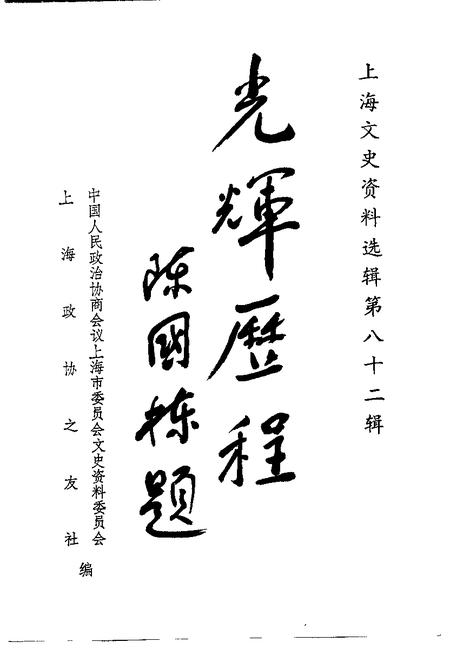 上海文史资料选辑第八十二辑
光輝歷程
陈國栋题
中国人民政治协商会议上海市委员会文史资料委员会
上海政协之友社
编